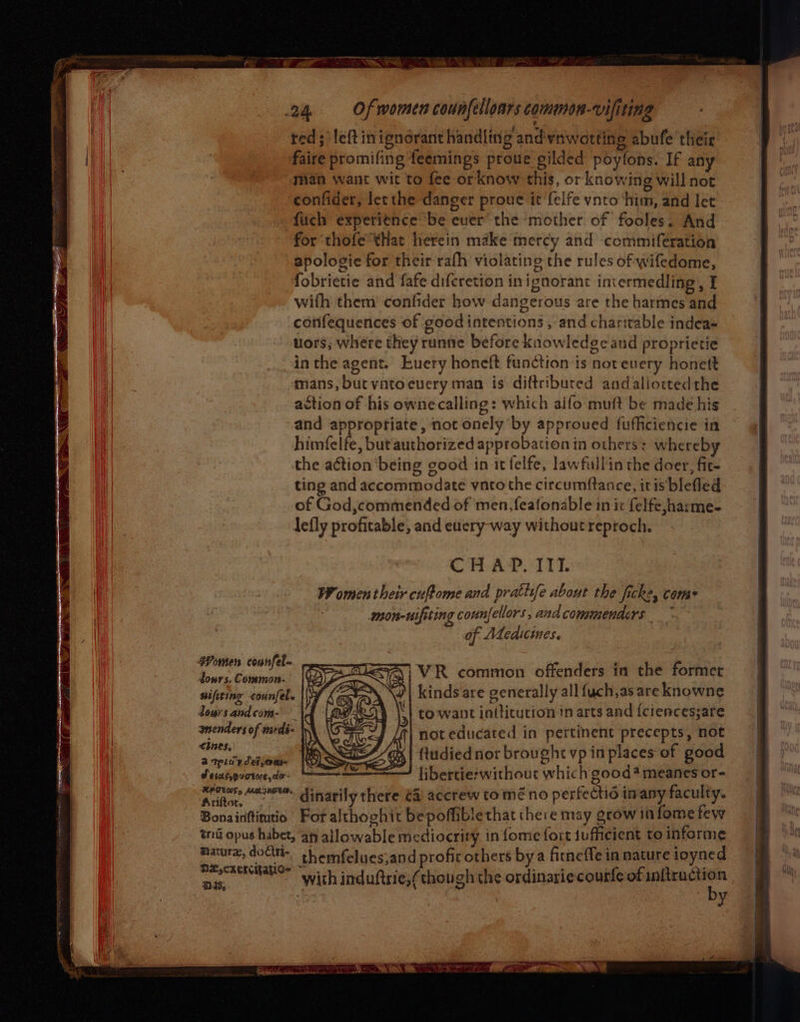 24 Of women counſellours common-viſiting
red; leſt in ignorant handling and vnwotting abuſe their
faire promiſing ſeemings proue gilded poyſons. If any
man want wit to ſee or know this, or knowing will not
conſider, let the danger proue it ſelfe vnto him, and let
ſuch experience be euer the mother of fooles. And
for thoſe that herein make mercy and commiſeration
apologie for their raſh violating the rules of wiſedome,
ſobrietie and ſafe diſcretion in ignorant intermedling, I
wiſh them conſider how dangerous are the harmes and
conſequences of good intentions, and charitable indea-
uors, where they runne before knowledge and proprietie
in the agent. Euery honeſt function is not euery honeſt
mans, but vnto euery man is diſtributed and allotted the
action of his owne calling: which alſo muſt be made his
and appropriate, not onely by approued ſufficiencie in
himſelfe, but authorized approbation in others: whereby
the action being good in it ſelfe, lawfull in the doer, fit-
ting and accommodate vnto the circumſtance, it is bleſſed
of God, commended of men, ſeaſonable in it ſelfe, harme-
leſly profitable, and euery way without reproch.
CHAP. III.
Women their cuſtome and practiſe about the ſicke, com-
mon-uiſiting counſellors, and commenders
of Medicines.
Women counſel-
lours, Common-
uiſiting counſel-
lours and com-
menders of medi-
cines.
VR common offenders in the former
kinds are generally all ſuch, as are knowne
to want inſtitution in arts and ſciences; are
not educated in pertinent precepts, not
ſtudied nor brought vp in places of good
libertie: without which good a meanes or-
dinarily there ca accrew to mē no perfectiō in any faculty.
For althoghit be poſſible that there may grow in ſome few
an allowable mediocrity in ſome ſort ſufficient to informe
themſelues, and profit others by a fitneſſe in nature ioyned
with induſtrie, (though the ordinarie courſe of inſtruction
Ariſtot.
Bona inſtitutio
triū opus habet,
naturæ, doctri-
næ, exercitatio-
nis.
by